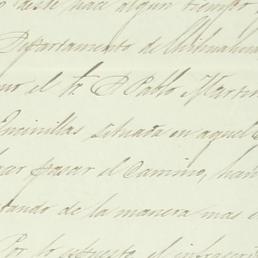 desde hace algun tiempo
Departamento de Chihuahua
el Sr. D. Pablo Martin
Encinillas situada en aquel
pasar el Camino, han
de la manera mas
Por lo espuesto el infrascrito